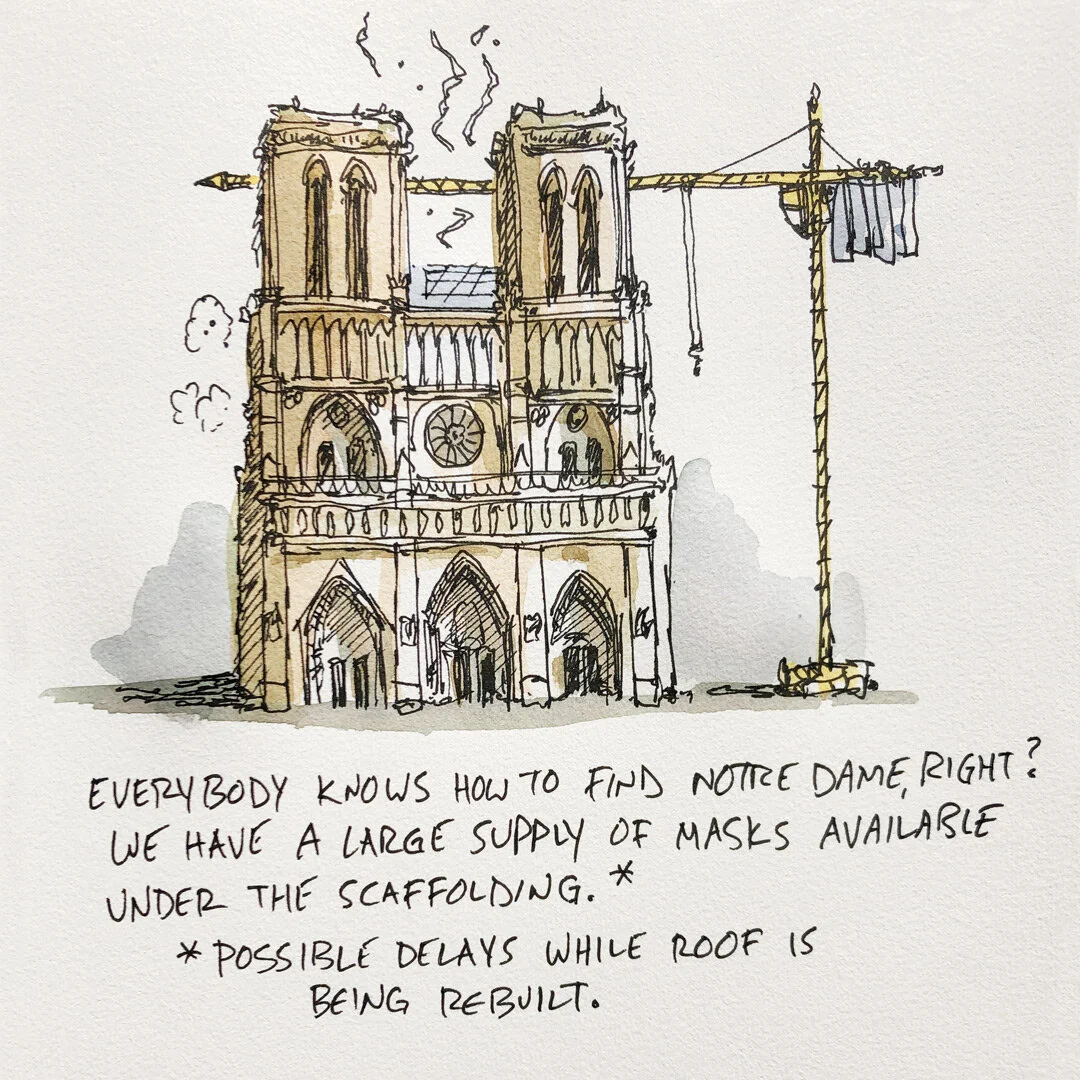 EVERYBODY KNOWS HOW TO FIND NOTRE DAME, RIGHT?
WE HAVE A LARGE SUPPLY OF MASKS AVAILABLE
UNDER THE SCAFFOLDING.*
*POSSIBLE DELAYS WHILE ROOF IS
BEING REBUILT.